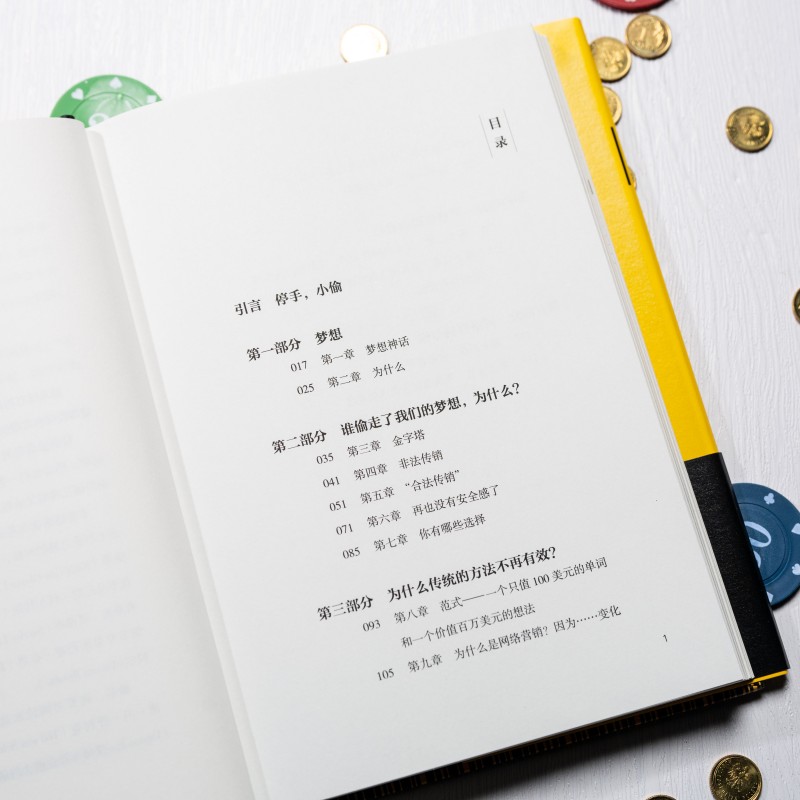 目录
引言 停手，小偷
第一部分 梦想
017 第一章 梦想神话
025 第二章 为什么
第二部分 谁偷走了我们的梦想，为什么？
035 第三章 金字塔
041 第四章 非法传销
051 第五章 “合法传销”
071 第六章 再也没有安全感了
085 第七章 你有哪些选择
第三部分 为什么传统的方法不再有效？
093 第八章 范式——一个只值 100 美元的单词
和一个价值百万美元的想法
105 第九章 为什么是网络营销？因为……变化
1